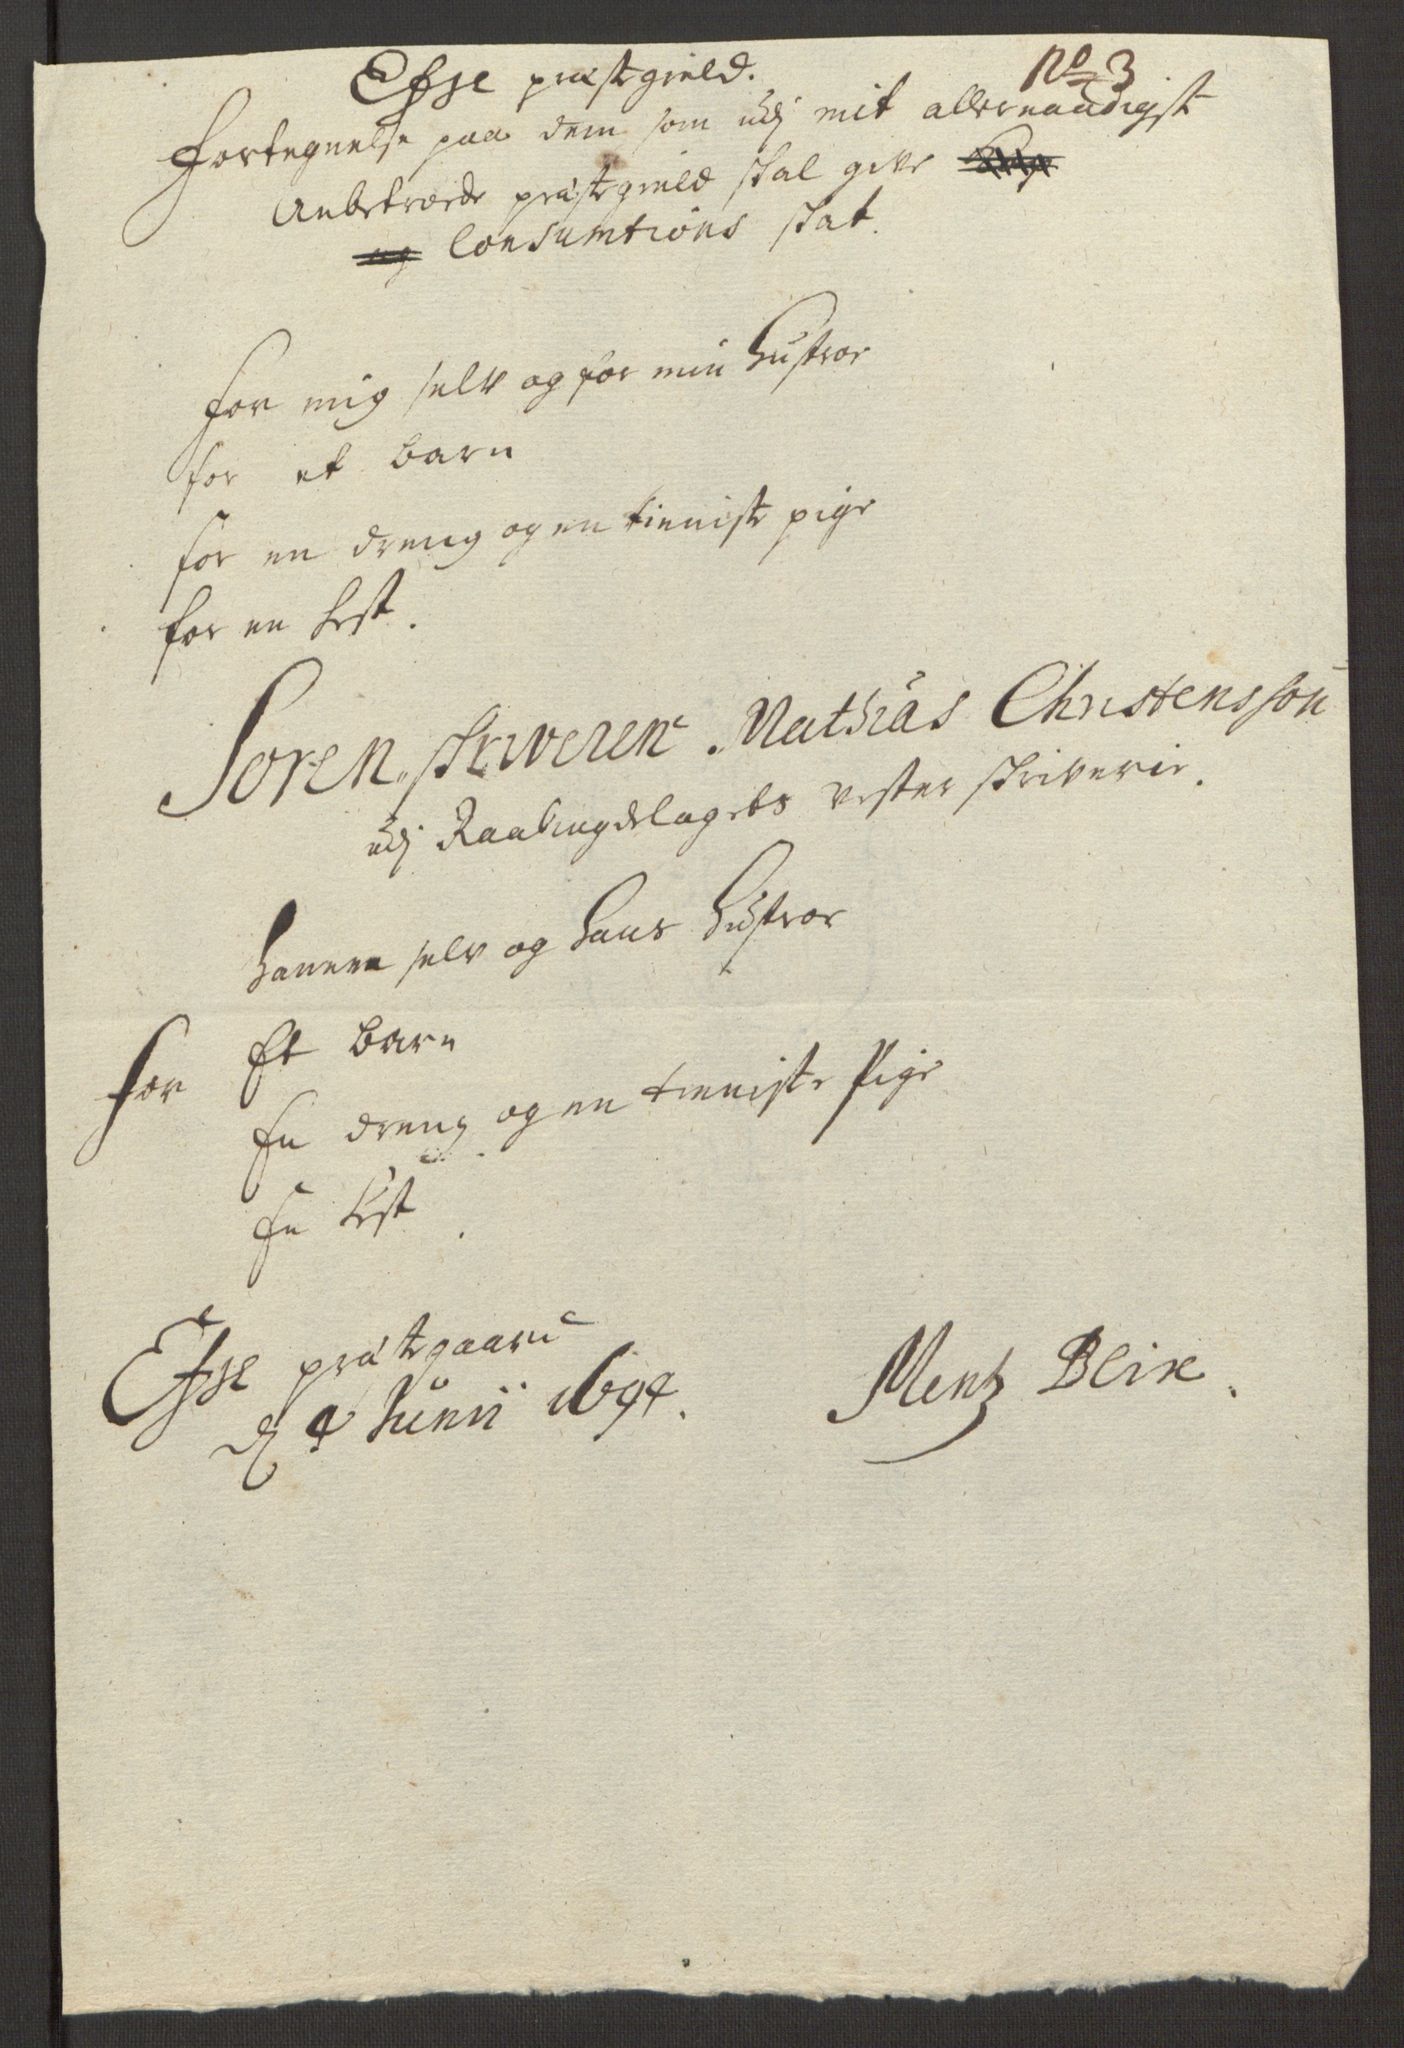 Efje præstgield. No 3
Fortegnelse paa dem som udj mit allernaadigst
Anbetroede præstegield skal give
og Consumtions skat.
For mig selv og for min hustroe
for et barn
for en dreng og en tieniste pige
for en hest.
Soren,, skriveren Mathias Christensson
udj Raabÿgdelagets vester skriverie.
hannem selv og hans hustroe
For Et barn
En dreng og en tieniste Pige
En hest
Efje præstgaard
d 4 Junii 1694.
Mentz Blix.